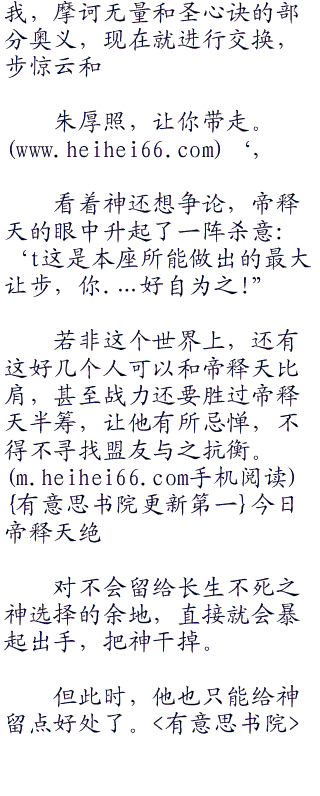 我，摩诃无量和圣心诀的部
分奥义，现在就进行交换，
步惊云和
朱厚照，让你带走。
(www.heihei66.com) ‘,
看着神还想争论，帝释
天的眼中升起了一阵杀意：
‘t这是本座所能做出的最大
让步，你.…好自为之!”
若非这个世界上，还有
这好几个人可以和帝释天比
肩，甚至战力还要胜过帝释
天半筹，让他有所忌惮，不
得不寻找盟友与之抗衡。
(m.heihei66.com手机阅读)
{有意思书院更新第一}今日
帝释天绝
对不会留给长生不死之
神选择的余地，直接就会暴
起出手，把神干掉。
但此时，他也只能给神
留点好处了。<有意思书院>